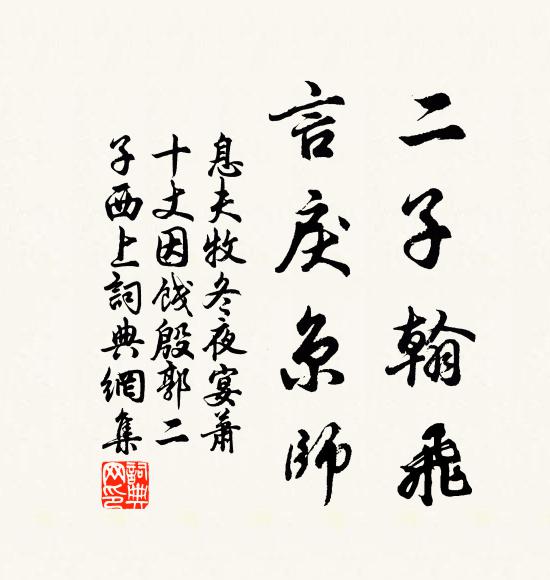 二子翰飛
言戾京師
息夫牧冬夜宴蕭
十丈因餞殷郭二
子西上詞典網集
詞典網印